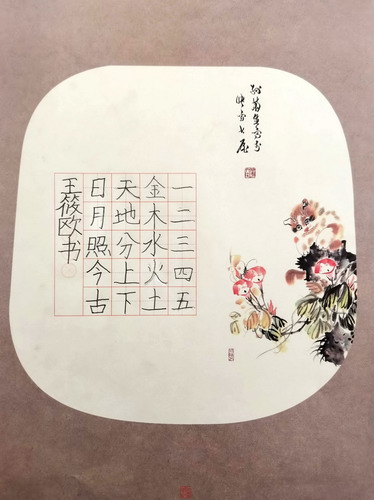 一二三四五
金木水火土
天地分上下
日月照今古
王筱欧书